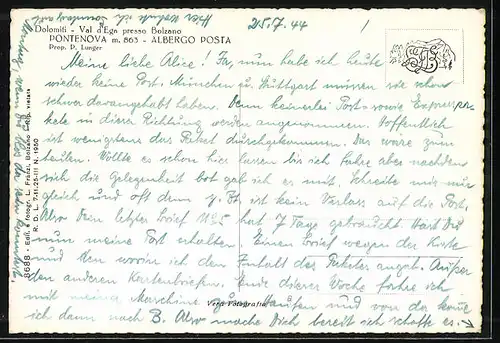 25.7.44
Dolomiti - Val d'Ega presso Bolzano
PONTENOVA m. 863 - ALBERGO POSTA
Prop. P. Lunger
Meine liebe Alice! Ja, nun habe ich heute
wieder keine Post. München u. Stuttgart müssen wie schon
schwer darangehabt haben. Denn keinerlei Post sowie Expresspa-
kete in dieser Richtung werden angenommen. Hoffentlich
ist wenigstens das Paket durchgekommen. Das wäre zum
heulen. Wollte es schon hier lassen bis ich fahre aber nachdem
sich die Gelegenheit bot gab ich es mit. Schreibe mir nur
gleich und oft denn z. Zt. ist kein Verlass auf die Post.
Also Dein letzter Brief No 25 hat 7 Tage gebraucht. Hast Du
nun meine Post erhalten. Einen Brief wegen der Kiste
und den worin ich den Inhalt des Paketes angab. Außer
den anderen Kartenbriefen. Ende dieser Woche fahre ich
mit meiner Maschine nach und von da komme
ich dann nach B. Also mache Dich bereit ich schaffe es.
Vera Fotografia
8688 - Ediz. e fotogr. L. Fränzl, Bolzano - Rip. vietata
R. D. L. 7-11-25-III N. 1950